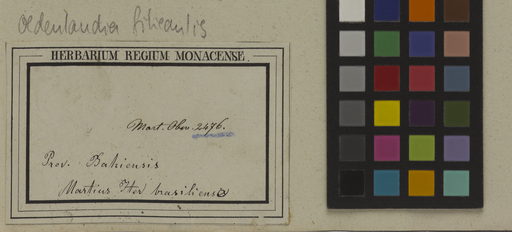 Oldenlandia filicaulis
HERBARIUM REGIUM MONACENSE.
Mart. Obs. 2476.
Prov. Bahiensis
Martius Iter brasiliensis